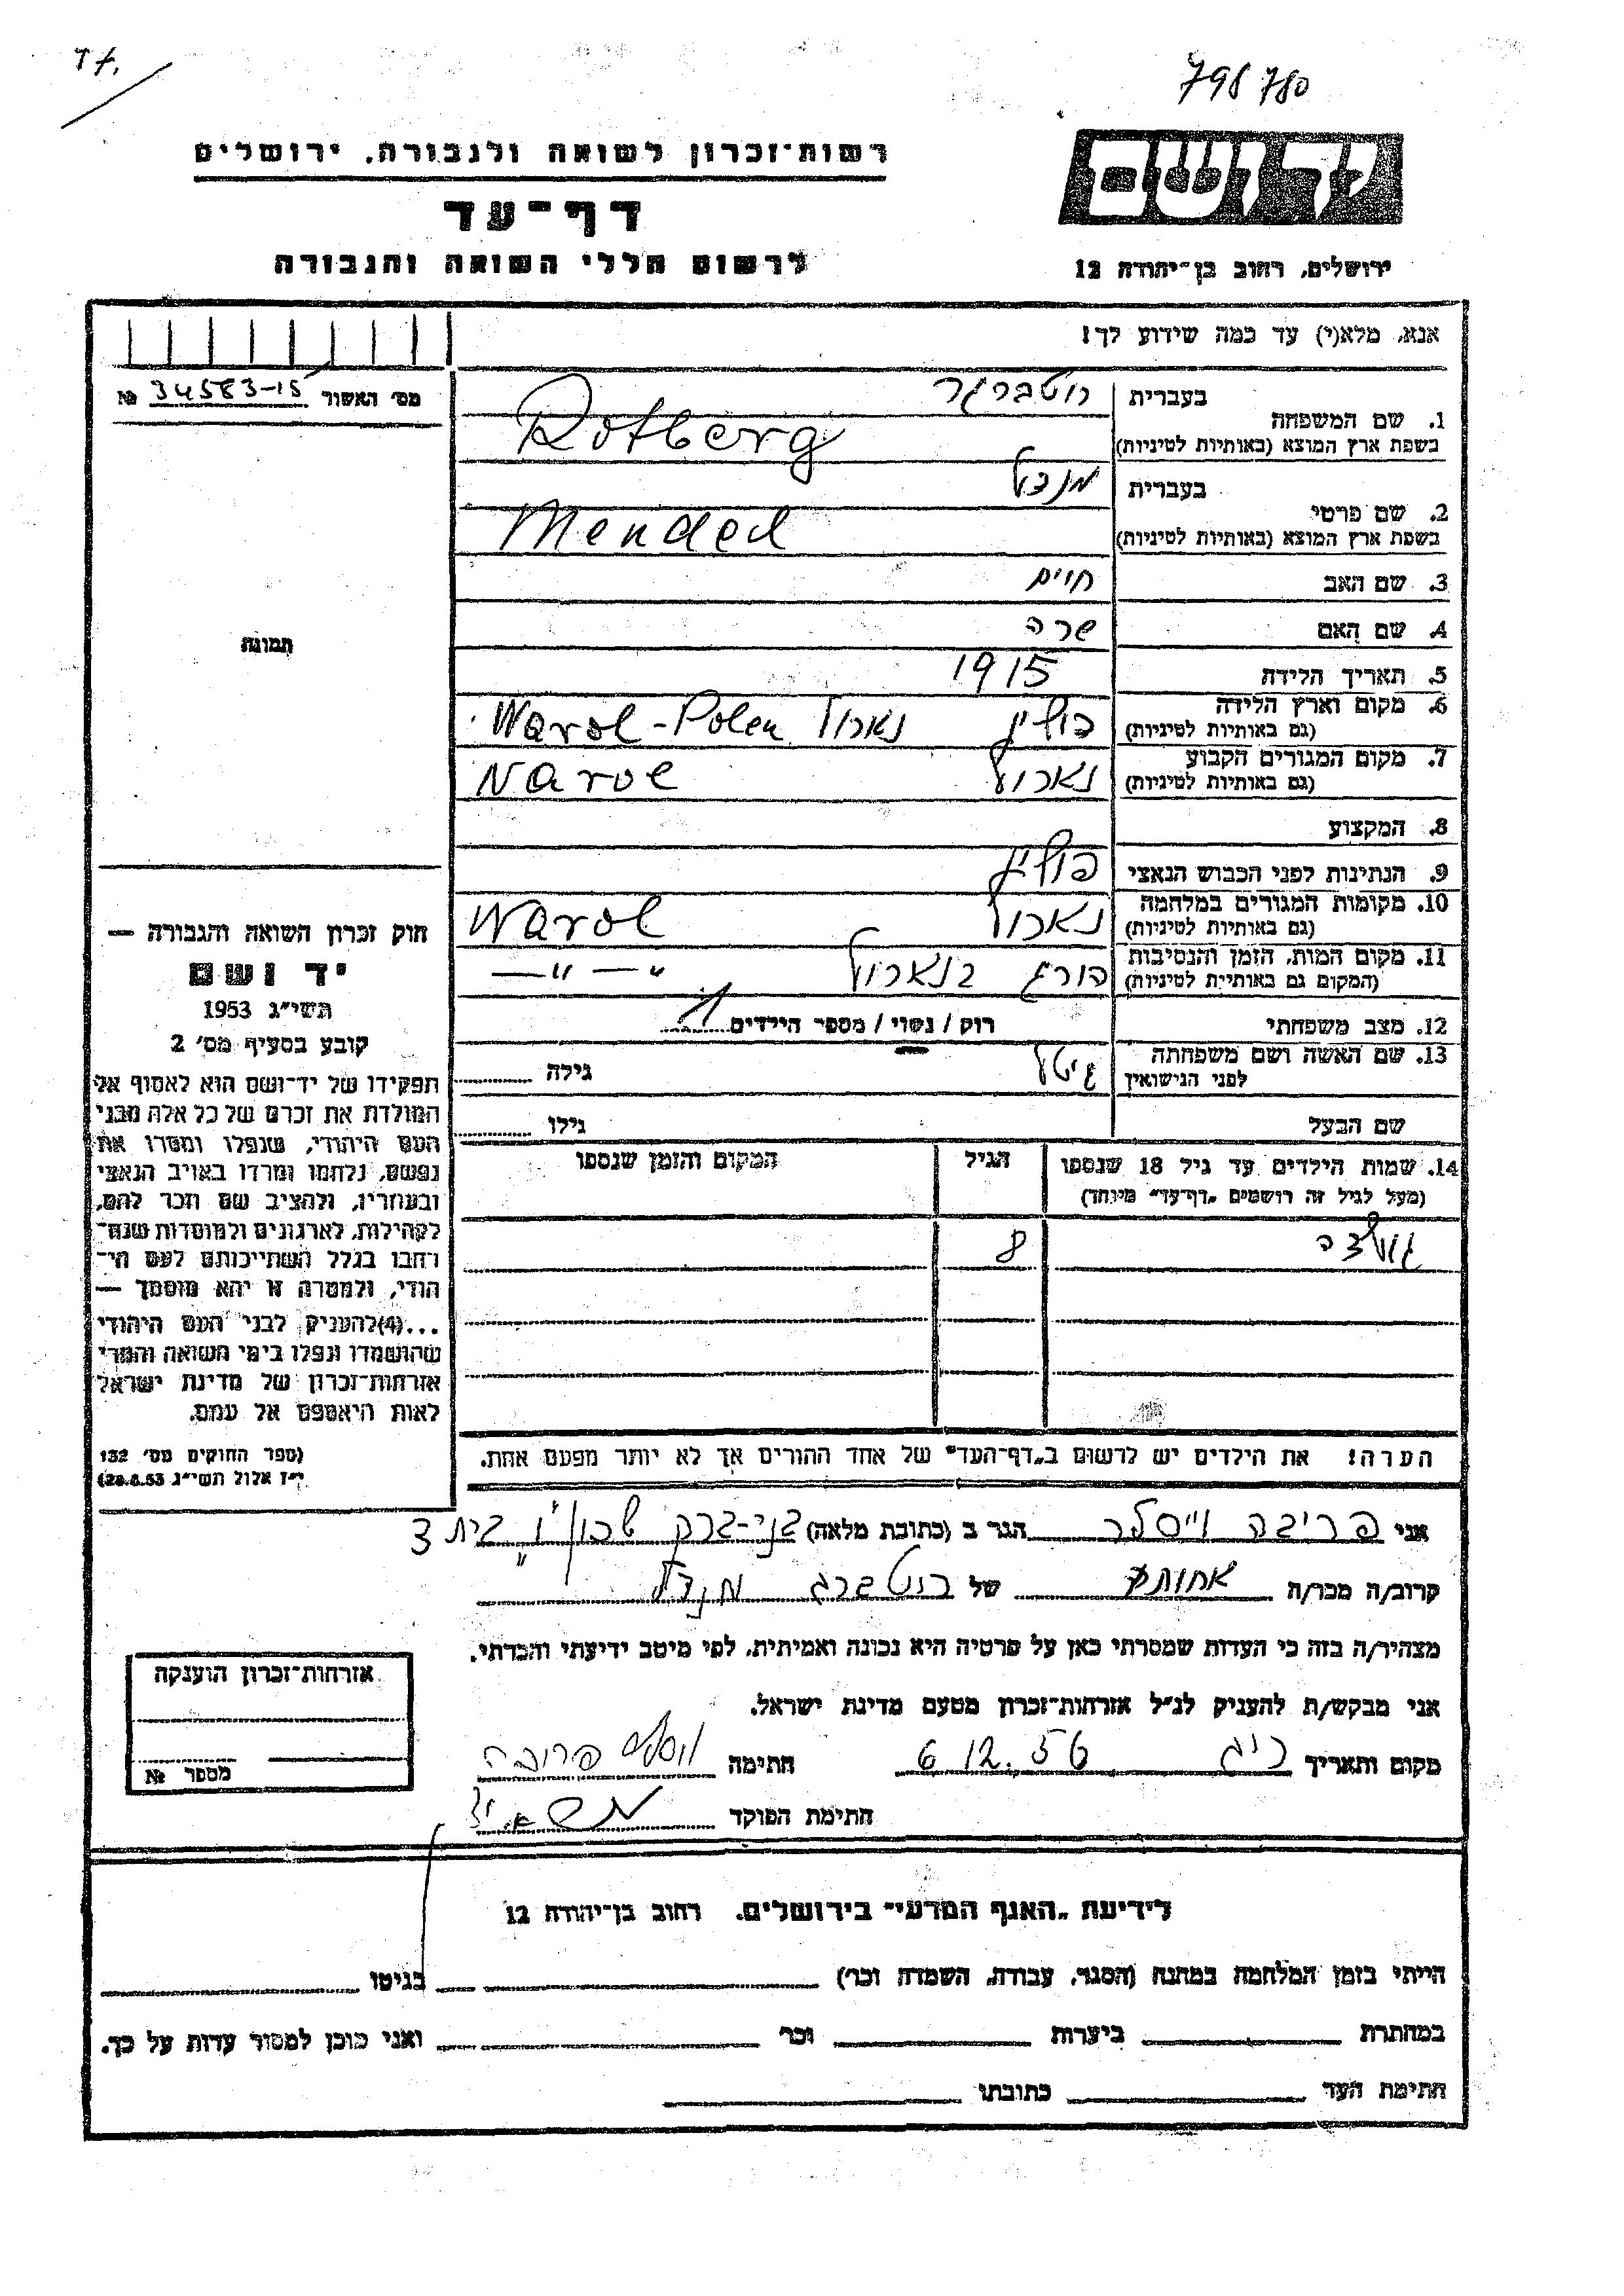 T f.
798780
רשות־זכרון לשואה ולגבורה, ירושלים
דף־עד
לרשום חללי השואה והגבורה
ידושם
ירושלים, רחוב בן־יהודה 12
אנא, מלא(י) עד כמה שידוע לך!
מס׳ האשור 34583-15 №
1. שם המשפחה
בעברית רוטברג
בשפת ארץ המוצא (באותיות לטיניות) Rotberg
2. שם פרטי
בעברית מנדל
בשפת ארץ המוצא (באותיות לטיניות) Mendel
3. שם האב חיים
4. שם האם שרה
5. תאריך הלידה 1915
6. מקום וארץ הלידה
(גם באותיות לטיניות) פולין נארול Narol-Polen
7. מקום המגורים הקבוע
(גם באותיות לטיניות) נארול Narol
8. המקצוע
9. הנתינות לפני הכבוש הנאצי פולין
10. מקומות המגורים במלחמה
(גם באותיות לטיניות) נארול Narol
11. מקום המות, הזמן והנסיבות
(המקום גם באותיות לטיניות) הורג בנארול —״—״—
12. מצב משפחתי רוק / נשוי / מספר הילדים 1
13. שם האשה ושם משפחתה
לפני הנישואין גיטל גילה
שם הבעל גילו
14. שמות הילדים עד גיל 18 שנספו
(מעל לגיל זה רושמים „דף־עד״ מיוחד)
הגיל
המקום והזמן שנספו
גולדה 8
הערה! את הילדים יש לרשום ב„דף־העד״ של אחד ההורים אך לא יותר מפעם אחת.
תמונה
חוק זכרון השואה והגבורה —
יד ושם
תשי״ג 1953
קובע בסעיף מס׳ 2
תפקידו של יד־ושם הוא לאסוף אל
המולדת את זכרם של כל אלה מבני
העם היהודי, שנפלו ומסרו את
נפשם, נלחמו ומרדו באויב הנאצי
ובעוזריו, ולהציב שם וזכר להם,
לקהילות, לארגונים ולמוסדות שנח־
רחבו בגלל השתייכותם לעם הי־
הודי, ולמטרה זו יהא מוסמך —
...(4)להעניק לבני העם היהודי
שהושמדו ונפלו בימי השואה והמרי
אזרחות־זכרון של מדינת ישראל
לאות היאספם אל עמם.
(ספר החוקים מס׳ 132
י״ז אלול תשי״ג 28.8.53)
אני פריבה וייסלר הגר ב (כתובת מלאה) בני-ברק בית 3
קרוב/ה מכר/ה אחות של רוטברג מנדל
מצהיר/ה בזה כי העדות שמסרתי כאן על פרטיה היא נכונה ואמיתית, לפי מיטב ידיעתי והכרתי.
אני מבקש/ת להעניק לנ״ל אזרחות־זכרון מטעם מדינת ישראל.
מקום ותאריך 6.12.56 חתימה
חתימת הפוקד
אזרחות־זכרון הוענקה
מספר №
לידיעת „האגף המדעי״ בירושלים, רחוב בן־יהודה 12
הייתי בזמן המלחמה במחנה (הסגר, עבודה, השמדה וכר׳) בגיטו
במחתרת ביערות וכר׳ ואני מוכן למסור עדות על כך.
חתימת העד כתובתו